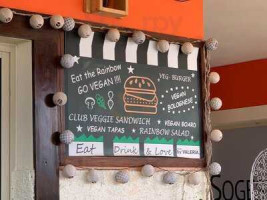 Eat the Rainbow
GO VEGAN !!!
VEG-BURGER
VEGAN
BOLOGNESE
CLUB VEGGIE SANDWICH
VEGAN BOARD
VEGAN TAPAS
RAINBOW SALAD
Eat
Drink
& Love
SOGE